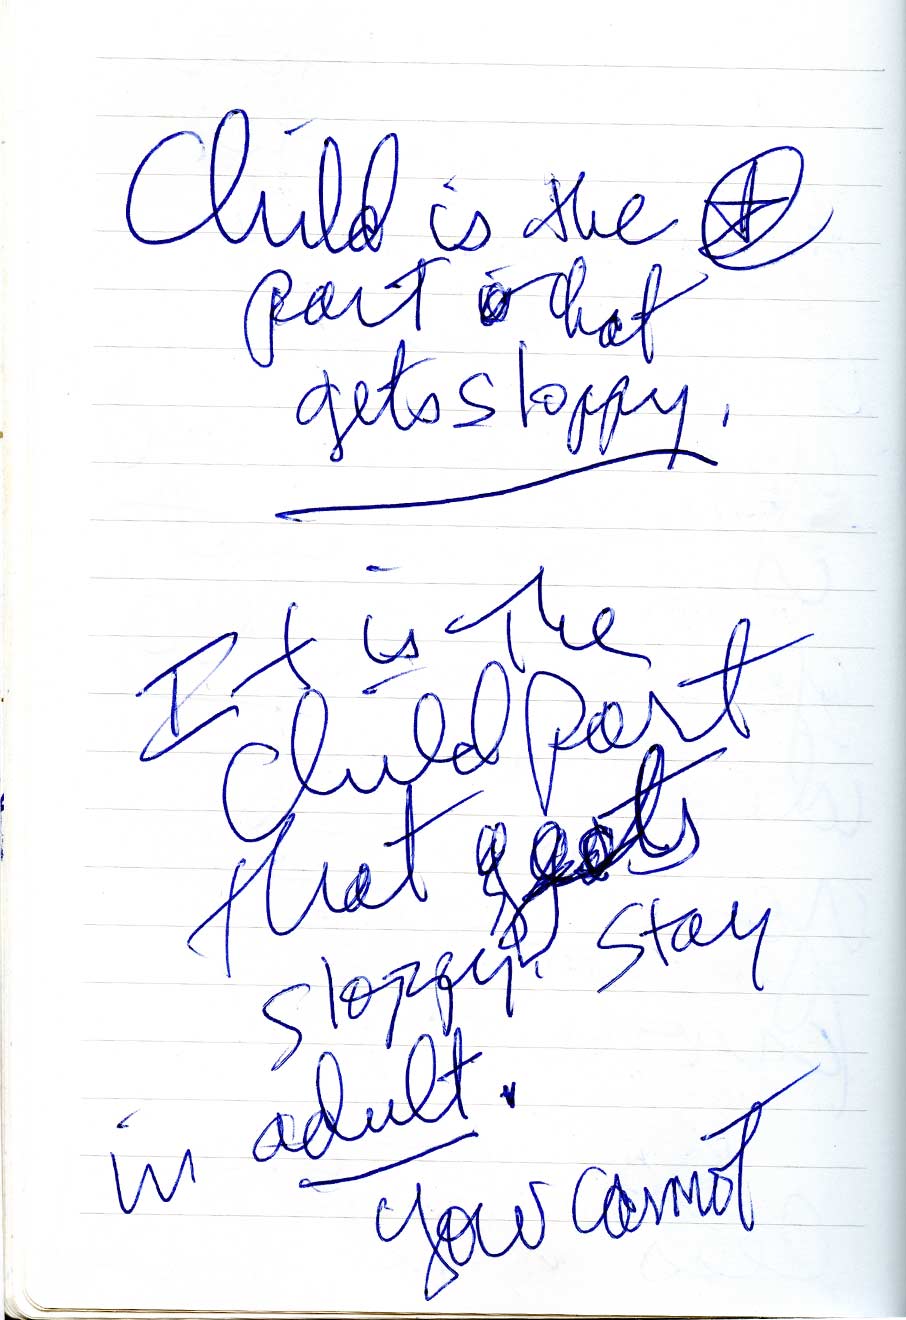 Child is the
part that
gets sloppy.
It is the
child part
that gets
sloppy. Stay
in adult.
You cannot